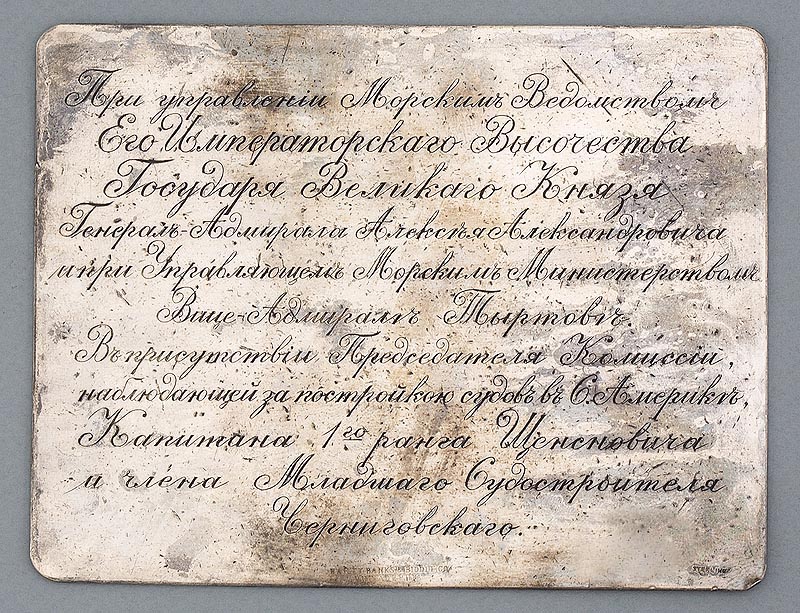 При управленіи Морскимъ Ведомствомъ
Его Императорскаго Высочества
Государя Великаго Князя
Генералъ-Адмирала Алексѣя Александровича
и при Управляющемъ Морскимъ Министерствомъ
Вице-Адмиралѣ Тыртовѣ.
Въ присутствіи Председателя Комиссіи,
наблюдающей за постройкою судовъ въ С. Америкѣ,
Капитана 1го ранга Щенсновича
и члена Младшаго Судостроителя
Черниговскаго.
BAILEY BANKS & BIDDLE CO.
STERLING